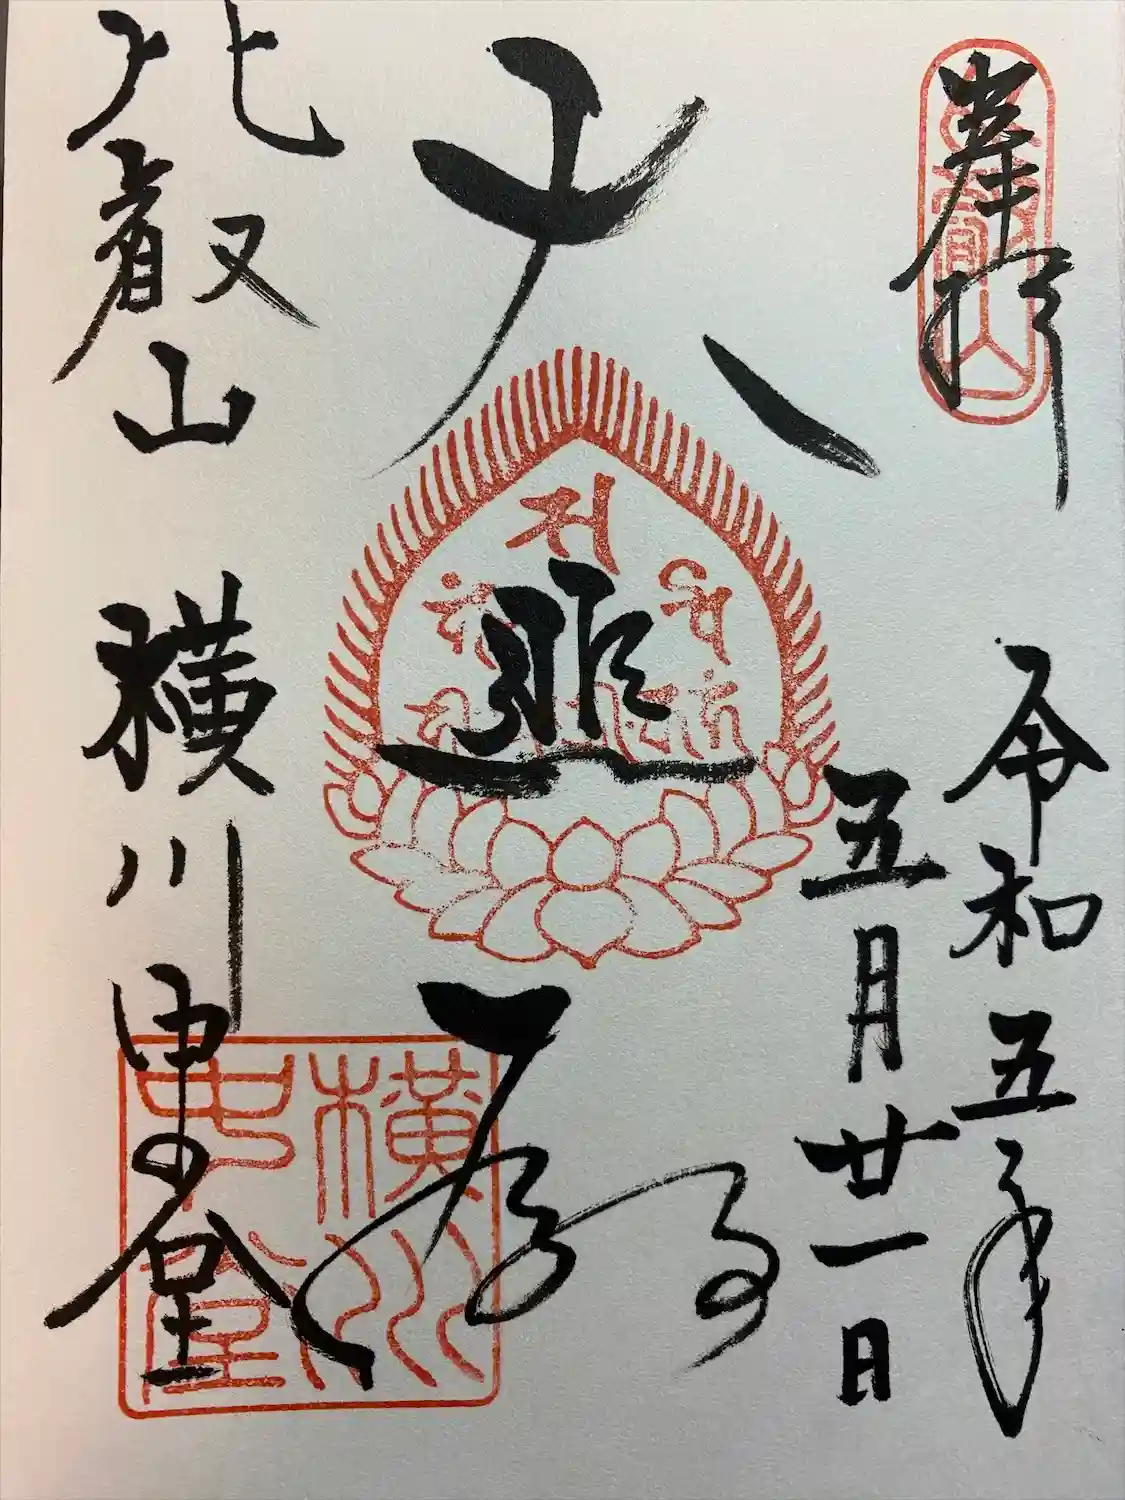 奉拝
比叡山
令和五年
五月廿一日
大悲殿
比叡山 横川中堂
横川中堂